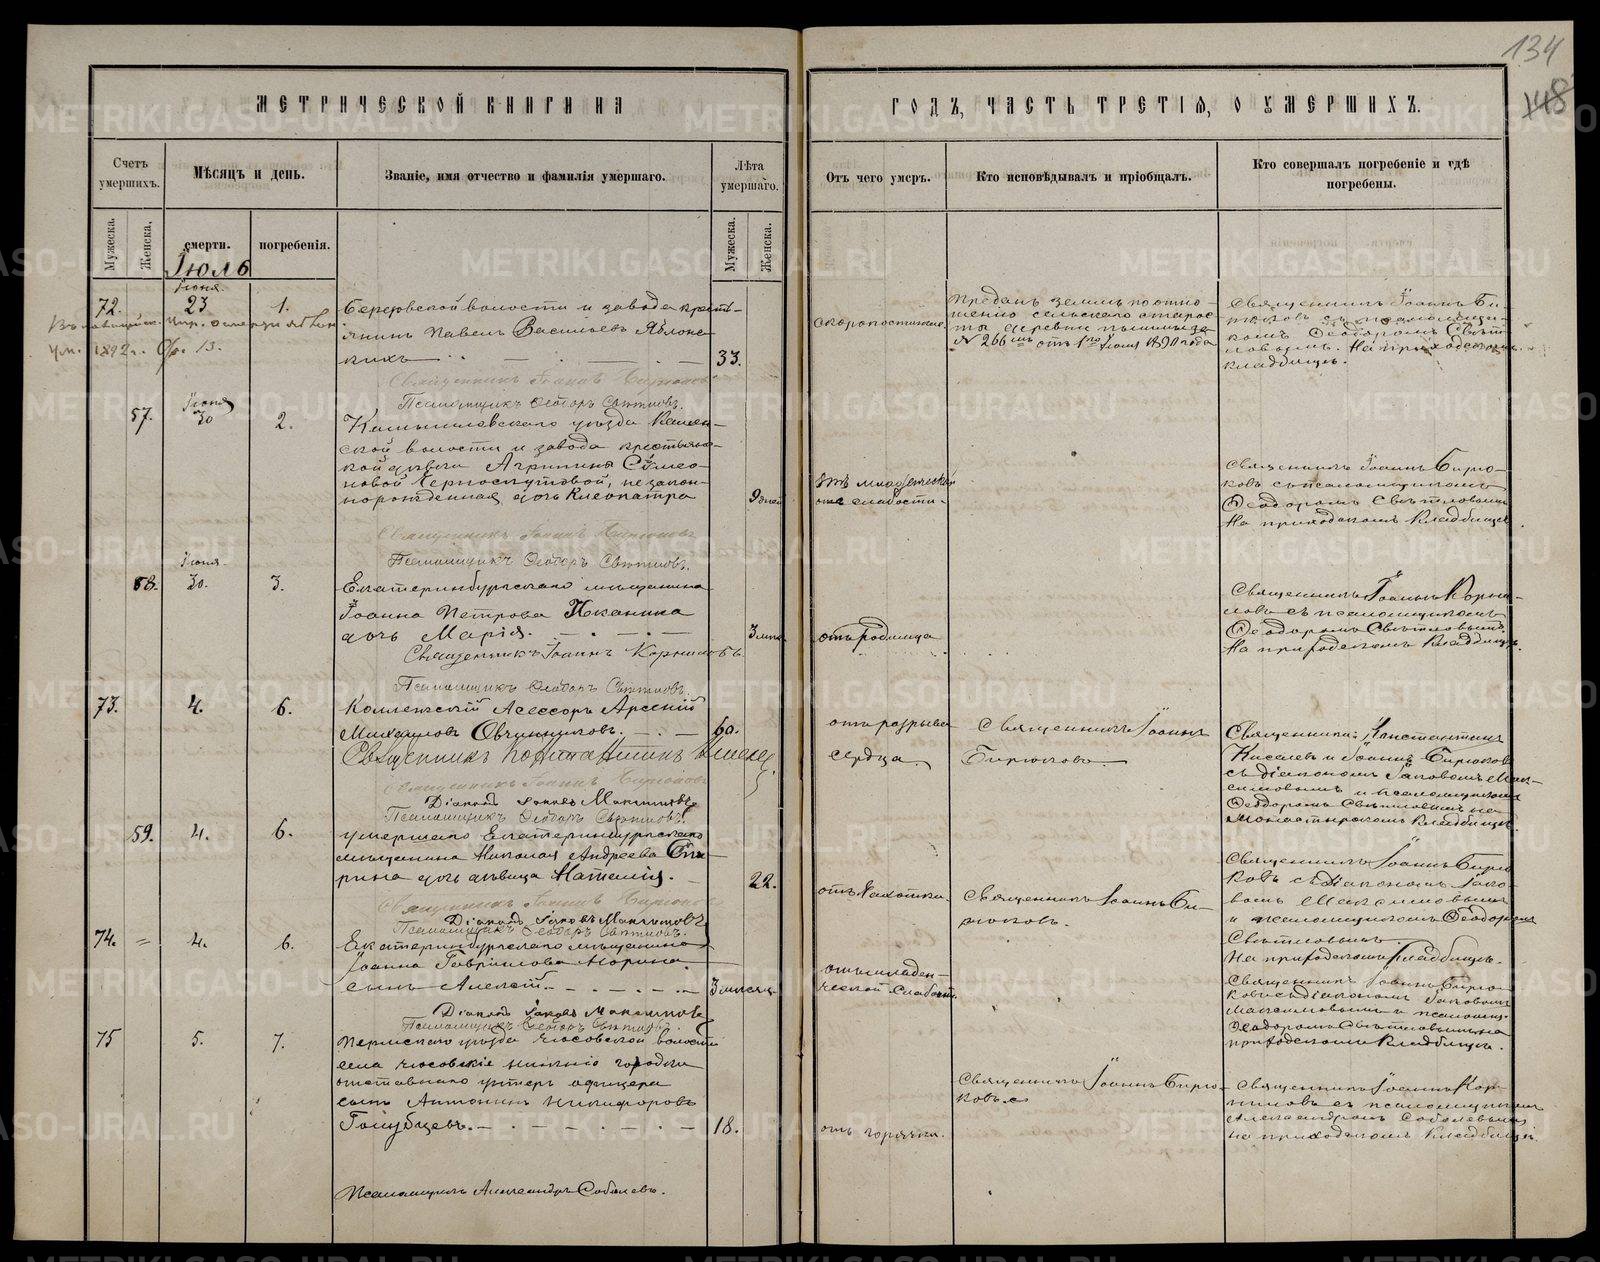 134
148
МЕТРИЧЕСКОЙ КНИГИ НА
ГОДЪ, ЧАСТЬ ТРЕТІЯ, О УМЕРШИХЪ.
Счетъ умершихъ.
Мѣсяцъ и день.
Званіе, имя отчество и фамилія умершаго.
Лѣта умершаго.
Отъ чего умеръ.
Кто исповѣдывалъ и пріобщалъ.
Кто совершалъ погребеніе и гдѣ погребены.
Мужеска.
Женска.
смерти.
погребенія.
Мужеска.
Женска.
Іюль
72.
Іюня.
23
1.
Березовской волости и завода кресть-
янинъ Павелъ Васильевъ Яблонс
кихъ
33.
скоропостижно.
Преданъ землѣ по отно-
шенію сельскаго старос-
ты деревни
№ 266 отъ 1го Іюля 1890 года
Священникъ Іоаннъ Би-
рюковъ съ псаломщи-
комъ Ѳеодоромъ Свѣт-
ловымъ. На приходскомъ
кладбищѣ.
ум. 1892 г.
Священникъ Іоаннъ Бирюковъ
Псаломщикъ Ѳеодоръ Свѣтловъ.
57.
Іюня
30
2.
Камышловскаго уѣзда Камен-
ской волости и завода крестьянс-
кой дѣвицы Агриппины Сѵмео-
новой Черноскутовой, незакон-
норожденная дочь Клеопатра
9 дней
отъ младенческой
слабости.
Священникъ Іоаннъ Бирю-
ковъ съ псаломщикомъ
Ѳеодоромъ Свѣтловымъ
На приходскомъ кладбищѣ.
Священникъ Іоаннъ Бирюковъ
Псаломщикъ Ѳеодоръ Свѣтловъ.
58.
Іюня.
30.
3.
Екатеринбургскаго мѣщанина
Іоанна Петрова
дочь Марія.
3 мѣс.
отъ родимца
Священникъ Іоаннъ Корни-
ловъ съ псаломщикомъ
Ѳеодоромъ Свѣтловымъ.
На приходскомъ кладбищѣ.
Священникъ Іоаннъ Корниловъ.
Псаломщикъ Ѳеодоръ Свѣтловъ.
73.
4.
6.
Коллежскій Асессоръ Арсеній
Михайловъ Овчинниковъ.
60.
отъ разрыва
сердца.
Священникъ Іоаннъ
Бирюковъ.
Священники: Константинъ
Киселевъ и Іоаннъ Бирюковъ
съ діакономъ Іаковомъ Мак-
симовымъ и псаломщикомъ
Ѳеодоромъ Свѣтловымъ на
Монастырскомъ кладбищѣ.
Священникъ Константинъ Киселев.
Священникъ Іоаннъ Бирюковъ
Діаконъ Іаковъ Максимовъ
Псаломщикъ Ѳеодоръ Свѣтловъ.
59.
4.
6.
умершаго Екатеринбургскаго
мѣщанина Николая Андреева
дочь дѣвица Наталія.
22.
отъ чахотки.
Священникъ Іоаннъ Би-
рюковъ.
Священникъ Іоаннъ Бирю
ковъ съ діакономъ Іако-
вомъ Максимовымъ
и псаломщикомъ Ѳеодоромъ
Свѣтловымъ.
На приходскомъ кладбищѣ.
Священникъ Іоаннъ Бирюковъ
Діаконъ Іаковъ Максимовъ
Псаломщикъ Ѳеодоръ Свѣтловъ.
74.
=
4.
6.
Екатеринбургскаго мѣщанина
Іоанна Гавріилова Морина.
сынъ Алексій.
3 мѣсяц.
отъ младен-
ческой слабост.
Священникъ Іоаннъ Бирю
ковъ съ діакономъ Іаковомъ
Максимовымъ и псаломщ.
Ѳеодоромъ Свѣтловымъ на
приходскомъ кладбищѣ.
Діаконъ Іаковъ Максимовъ
Псаломщикъ Ѳеодоръ Свѣтловъ.
75
5.
7.
Пермскаго уѣзда Чусовской волости
села Чусовскіе нижніе городки
отставнаго унтеръ офицера
сынъ Антонинъ Никифоровъ
Голубцевъ.
18.
отъ горячки.
Священникъ Іоаннъ Бирю-
ковъ.
Священникъ Іоаннъ Кор-
ниловъ съ псаломщикомъ
Александромъ Соболевымъ
на приходскомъ кладбищѣ.
Псаломщикъ Александръ Соболевъ.
METRIKI.GASO-URAL.RU